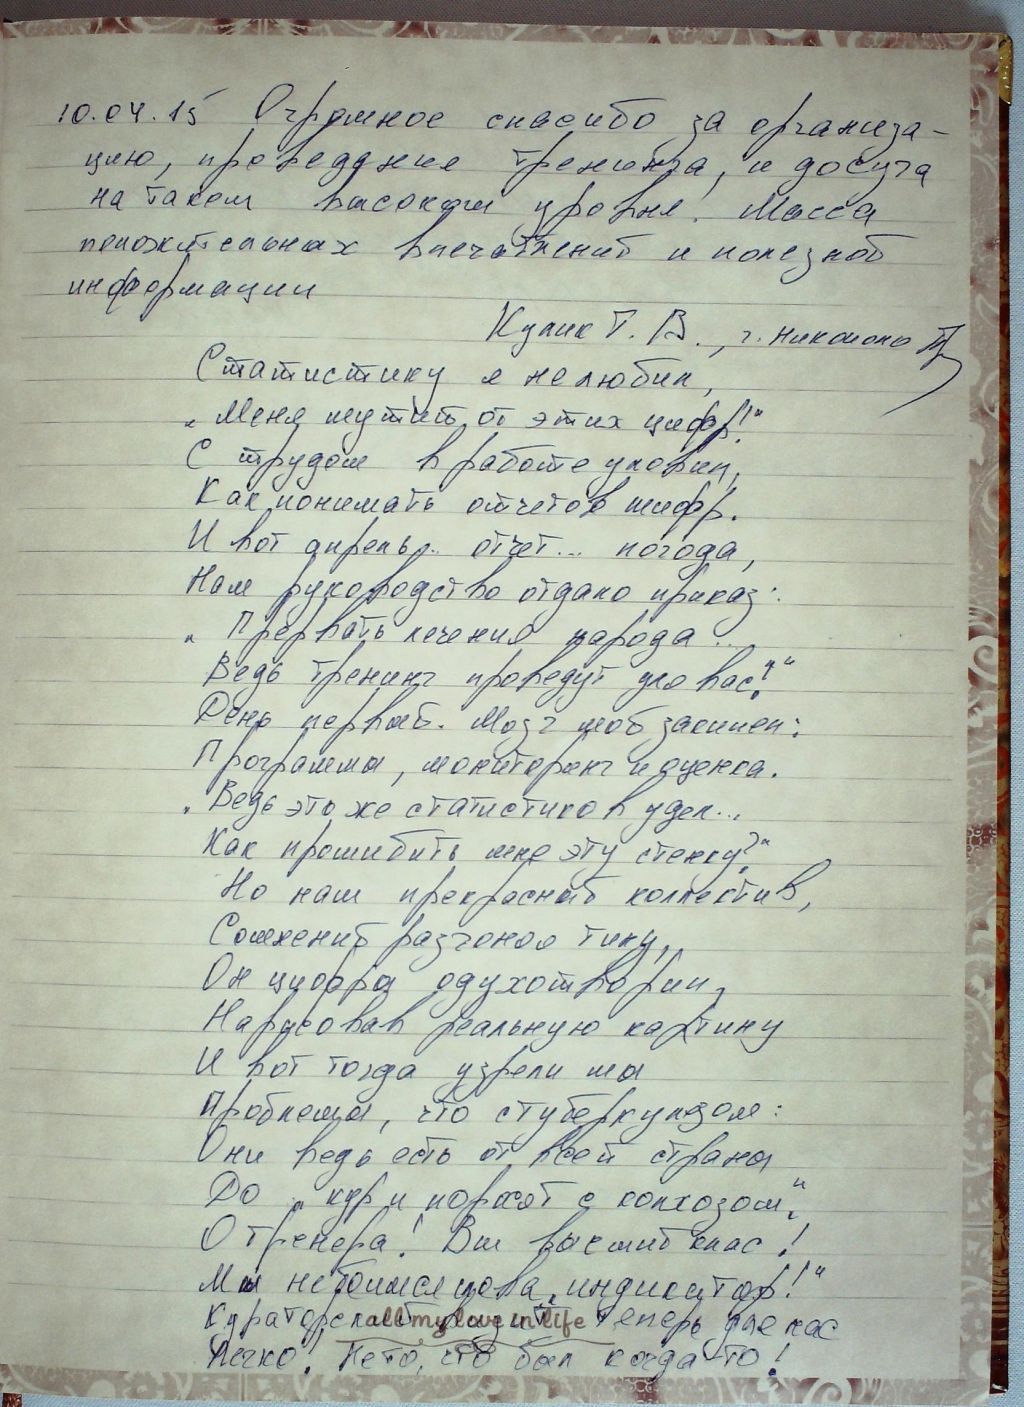 10.04.15 Огромное спасибо за организа-
цию, проведение тренинга, и досуга
на таком высоком уровне! Масса
положительных впечатлений и полезной
информации
Кулик Т. В., г. Никополь
Статистику я не любил,
„Меня мутит от этих цифр!“
С трудом в работе уловил,
Как понимать отчетов шифр.
И вот апрель... отчет... погода,
Нам руководство отдало приказ:
„Прервать лечения народа...
Ведь тренинг проведут для вас!“
День первый. Мозг мой закипел:
Программы, мониторинг и оценка.
„Ведь это же статистиков удел...
Как прошибить мне эту стенку?“
Но наш прекрасный коллектив,
Сомнений разгоняя тину,
Он цифры одухотворил,
Нарисовав реальную картину
И вот тогда узрели мы
Проблемы, что с туберкулезом:
Они ведь есть от всей страны
До „кур и поросят с колхозом“.
О тренера! Вы высший клас!
Мы не боимся слова „индикатор!“
Кураторский визит теперь для нас
Легко! Не то, что был когда-то!
all my love in life